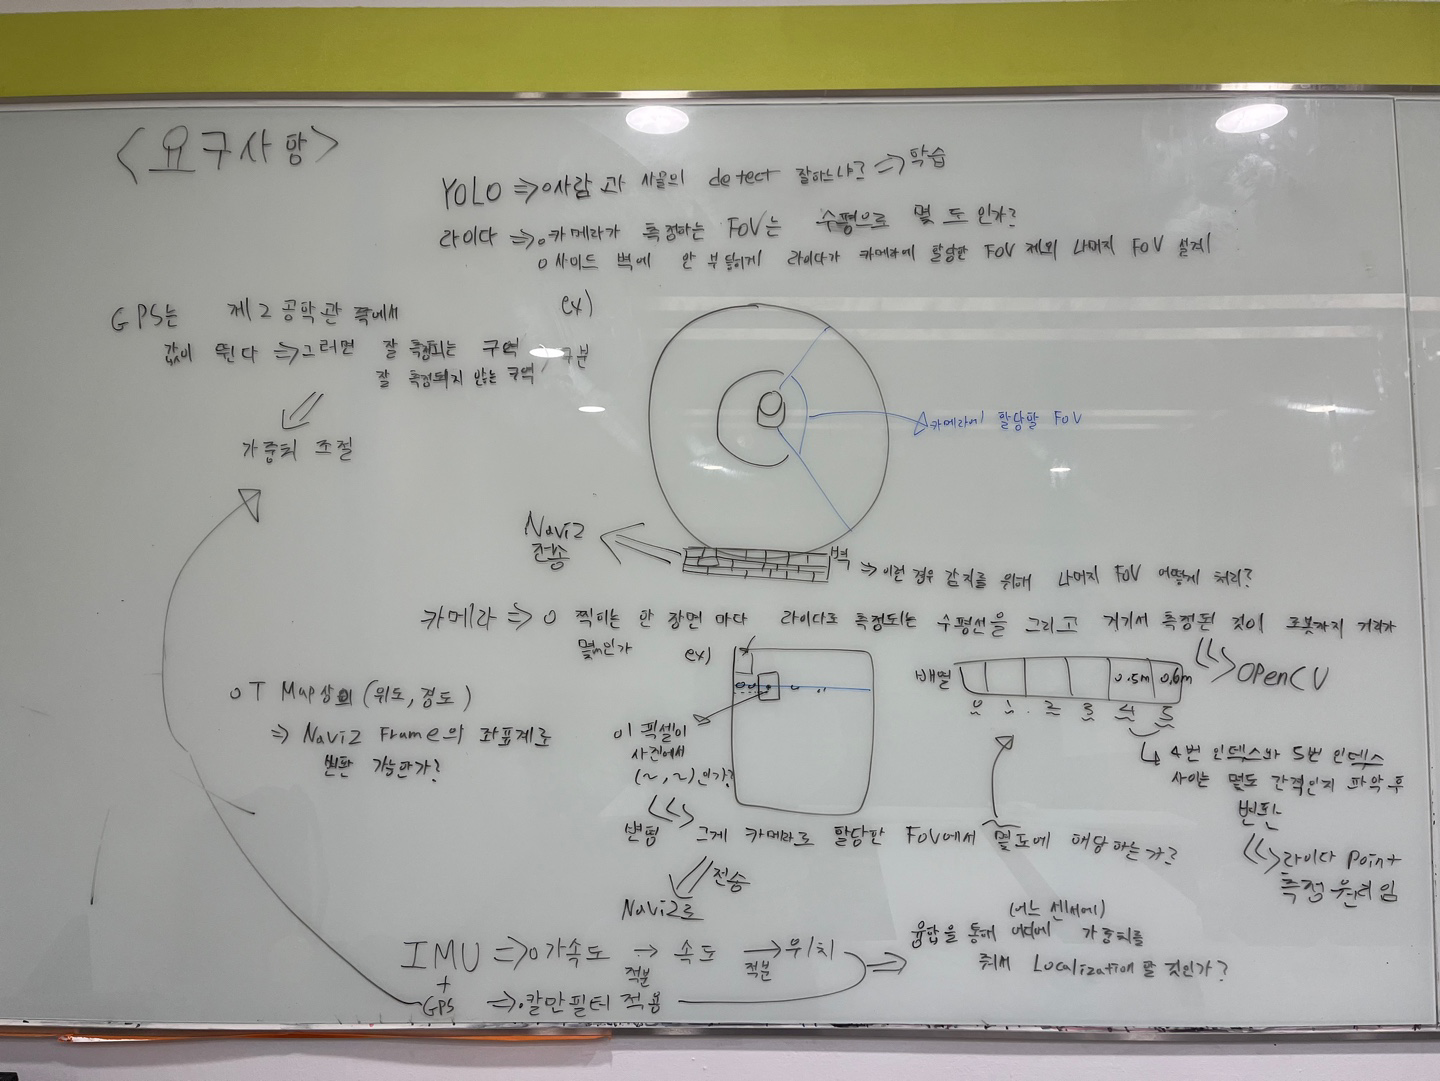 <요구사항>
YOLO ⇒ o 사람과 사물의 detect 잘하느냐? ⇒ 학습
라이다 ⇒ o 카메라가 측정하는 FoV는 수평으로 몇 도 인가?
o 사이드 벽에 안 부딪히게 라이다가 카메라에 할당한 FoV 제외 나머지 FoV 설계
GPS는 제2공학관 쪽에서
값이 튄다 ⇒ 그러면 잘 측정되는 구역, 구분
잘 측정되지 않는 구역
가중치 조절
ex)
카메라에 할당할 FoV
Navi2
전송
벽 ⇒ 이런 경우 감지를 위해 나머지 FoV 어떻게 처리?
카메라 ⇒ o 찍히는 한 장면 마다 라이다로 측정되는 수평선을 그리고 거기서 측정된 것이 로봇까지 거리가
몇m인가
ex)
배열 0.5m 0.6m
0 1 2 3 4 5
OpenCV
이 픽셀이
사진에서
(~, ~)인가?
4번 인덱스와 5번 인덱스
사이는 몇도 간격인지 파악 후
변환
라이다 Point
측정 원리임
o T Map상의 (위도, 경도)
⇒ Navi2 Frame의 좌표계로
변환 가능한가?
그게 카메라로 할당한 FoV에서 몇도에 해당하는가?
전송
Navi2로
IMU ⇒ o 가속도 → 속도 → 위치
적분 적분
+
GPS ⇒ 칼만필터 적용
(어느 센서에)
융합을 통해 가중치를
줘서 Localization할 것인가?